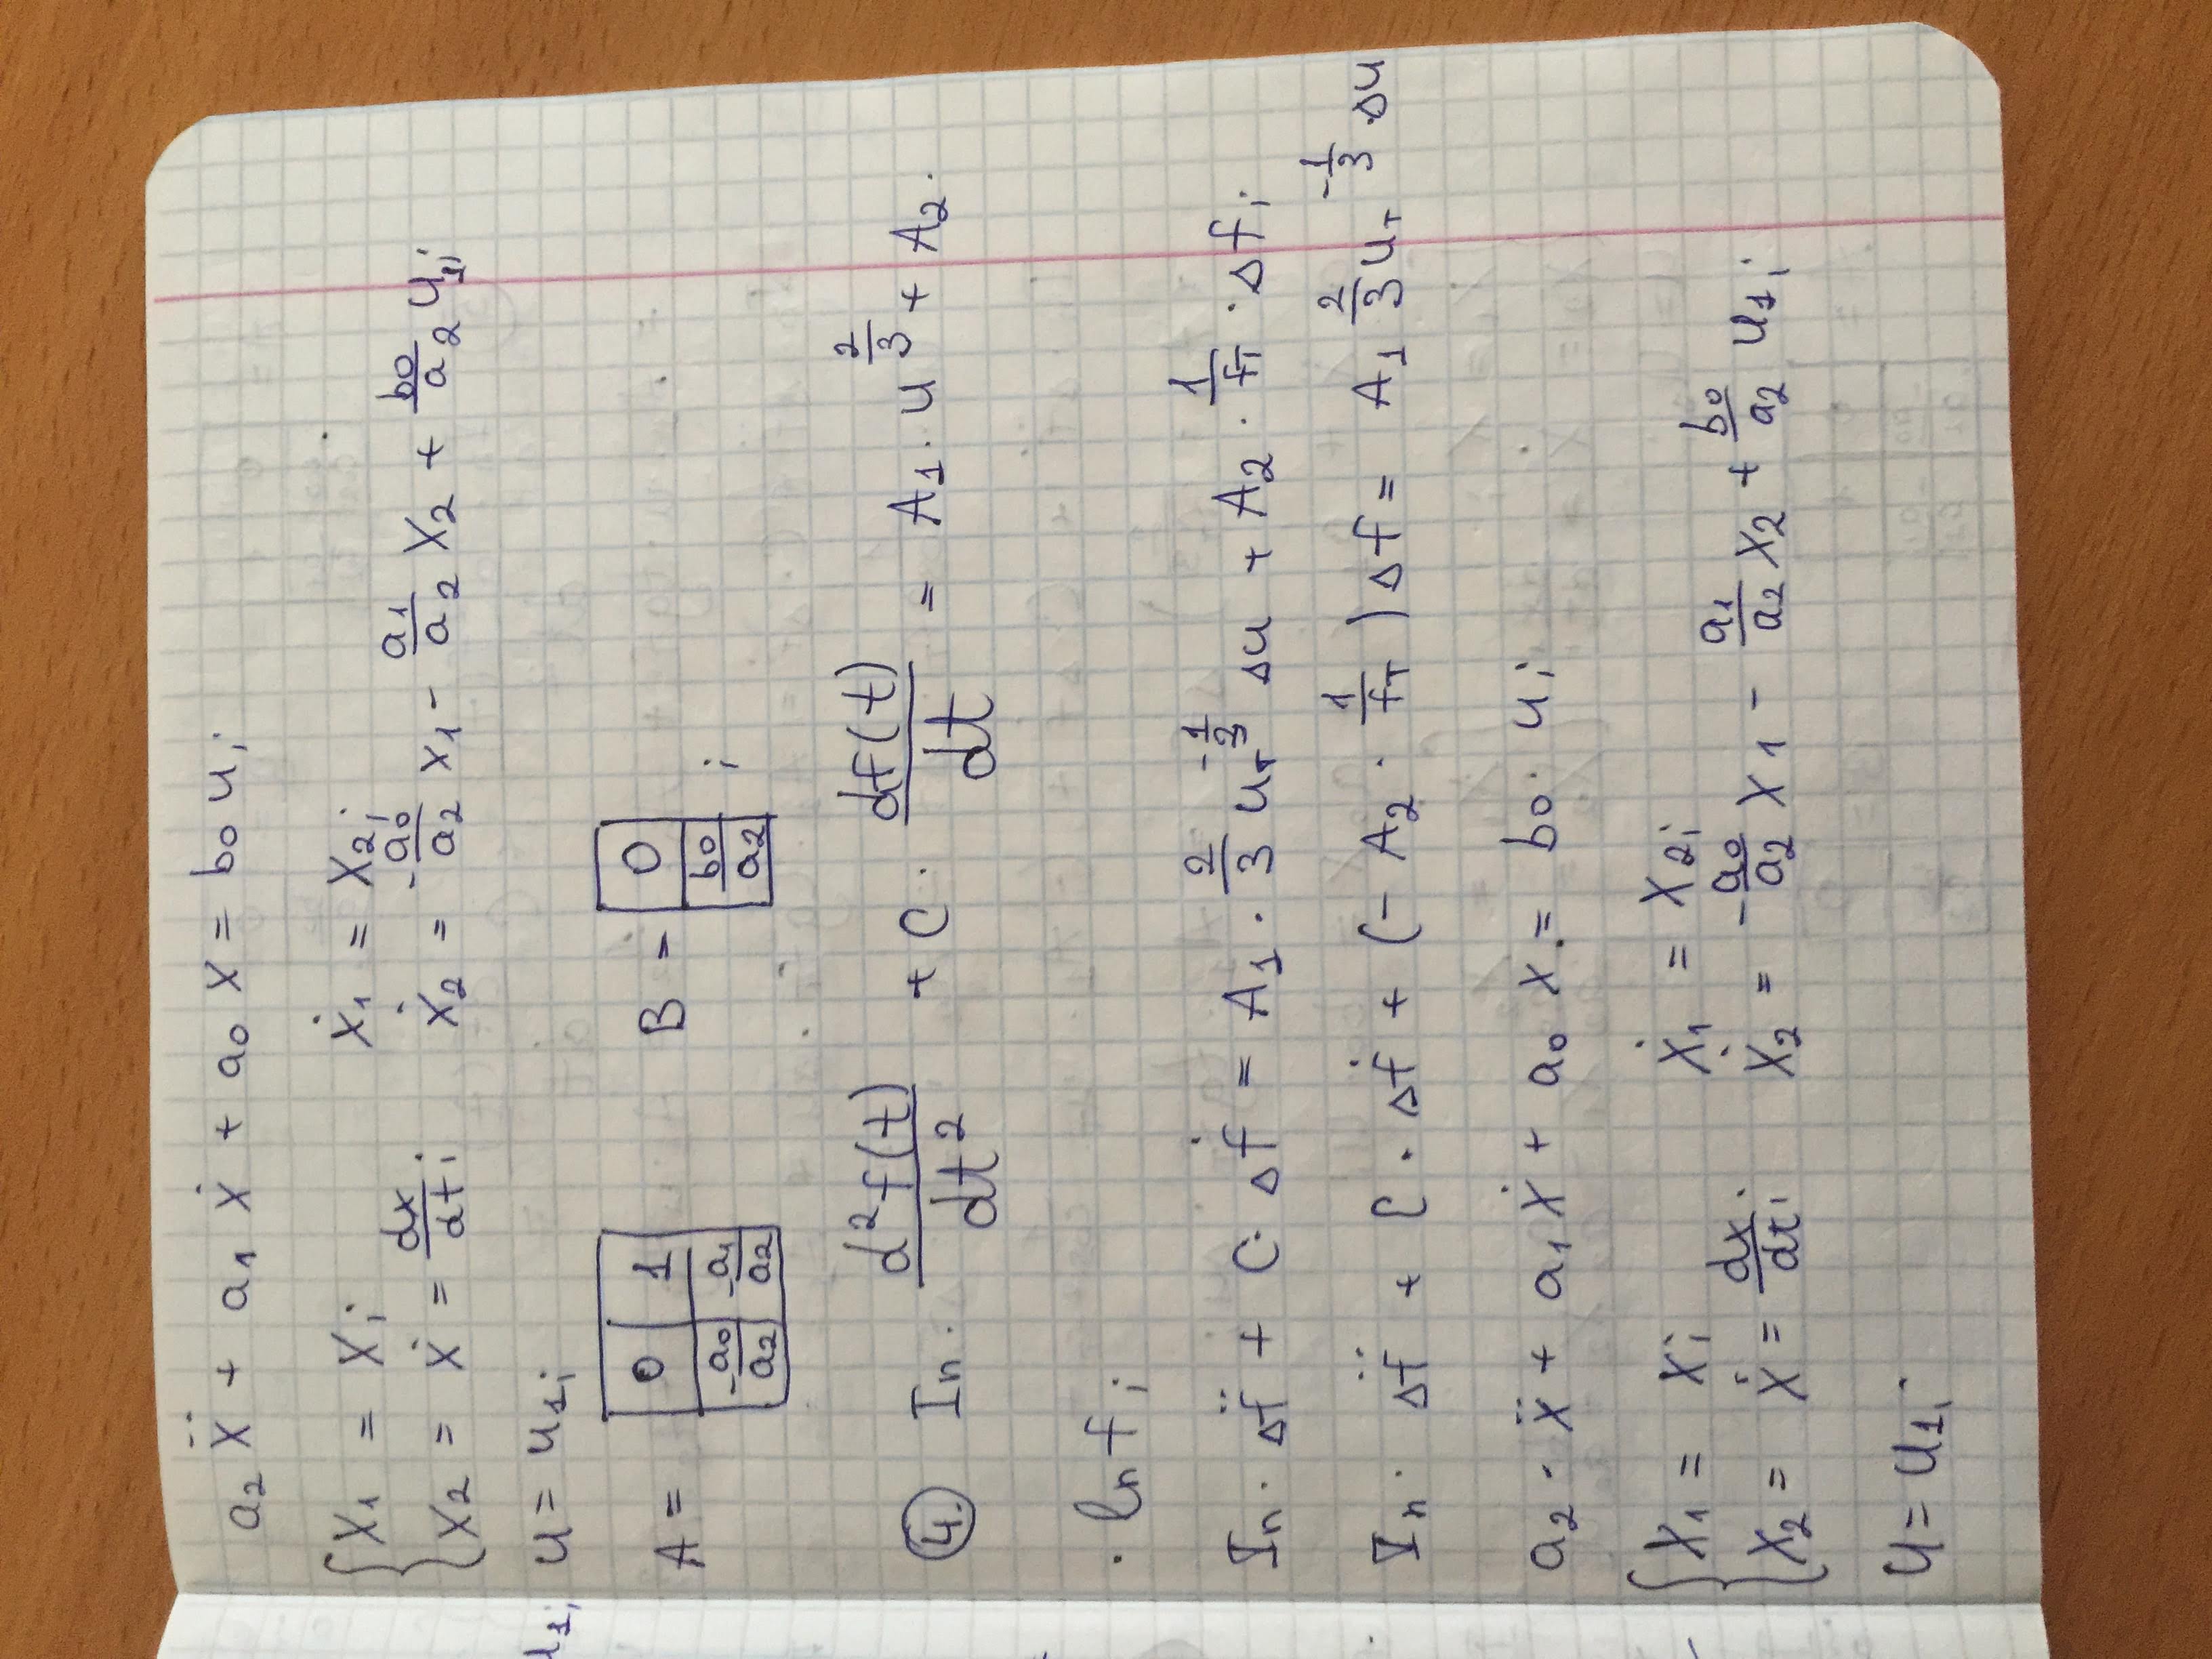 a₂ ẍ + a₁ ẋ + a₀ x = b₀ u;
{ x₁ = x; ẋ₁ = x₂;
x₂ = ẋ = dx/dt; ẋ₂ = -a₀/a₂ x₁ - a₁/a₂ x₂ + b₀/a₂ u₁;
u = u₁;
A = | 0 | 1 | B = | 0 |
| -a₀/a₂ | -a₁/a₂ | | b₀/a₂ | ;
4. Iₙ · d²f(t)/dt² + C · df(t)/dt = A₁ · u^(2/3) + A₂ ·
· ln f;
Iₙ · Δf̈ + C · Δḟ = A₁ · 2/3 uₜ^(-1/3) Δu + A₂ · 1/fₜ · Δf;
Iₙ · Δf̈ + C · Δḟ + (- A₂ · 1/fₜ) Δf = A₁ 2/3 uₜ^(-1/3) · Δu
a₂ · ẍ + a₁ ẋ + a₀ x = b₀ · u;
{ x₁ = x; ẋ₁ = x₂;
x₂ = ẋ = dx/dt; ẋ₂ = -a₀/a₂ x₁ - a₁/a₂ x₂ + b₀/a₂ u₁;
u = u₁;